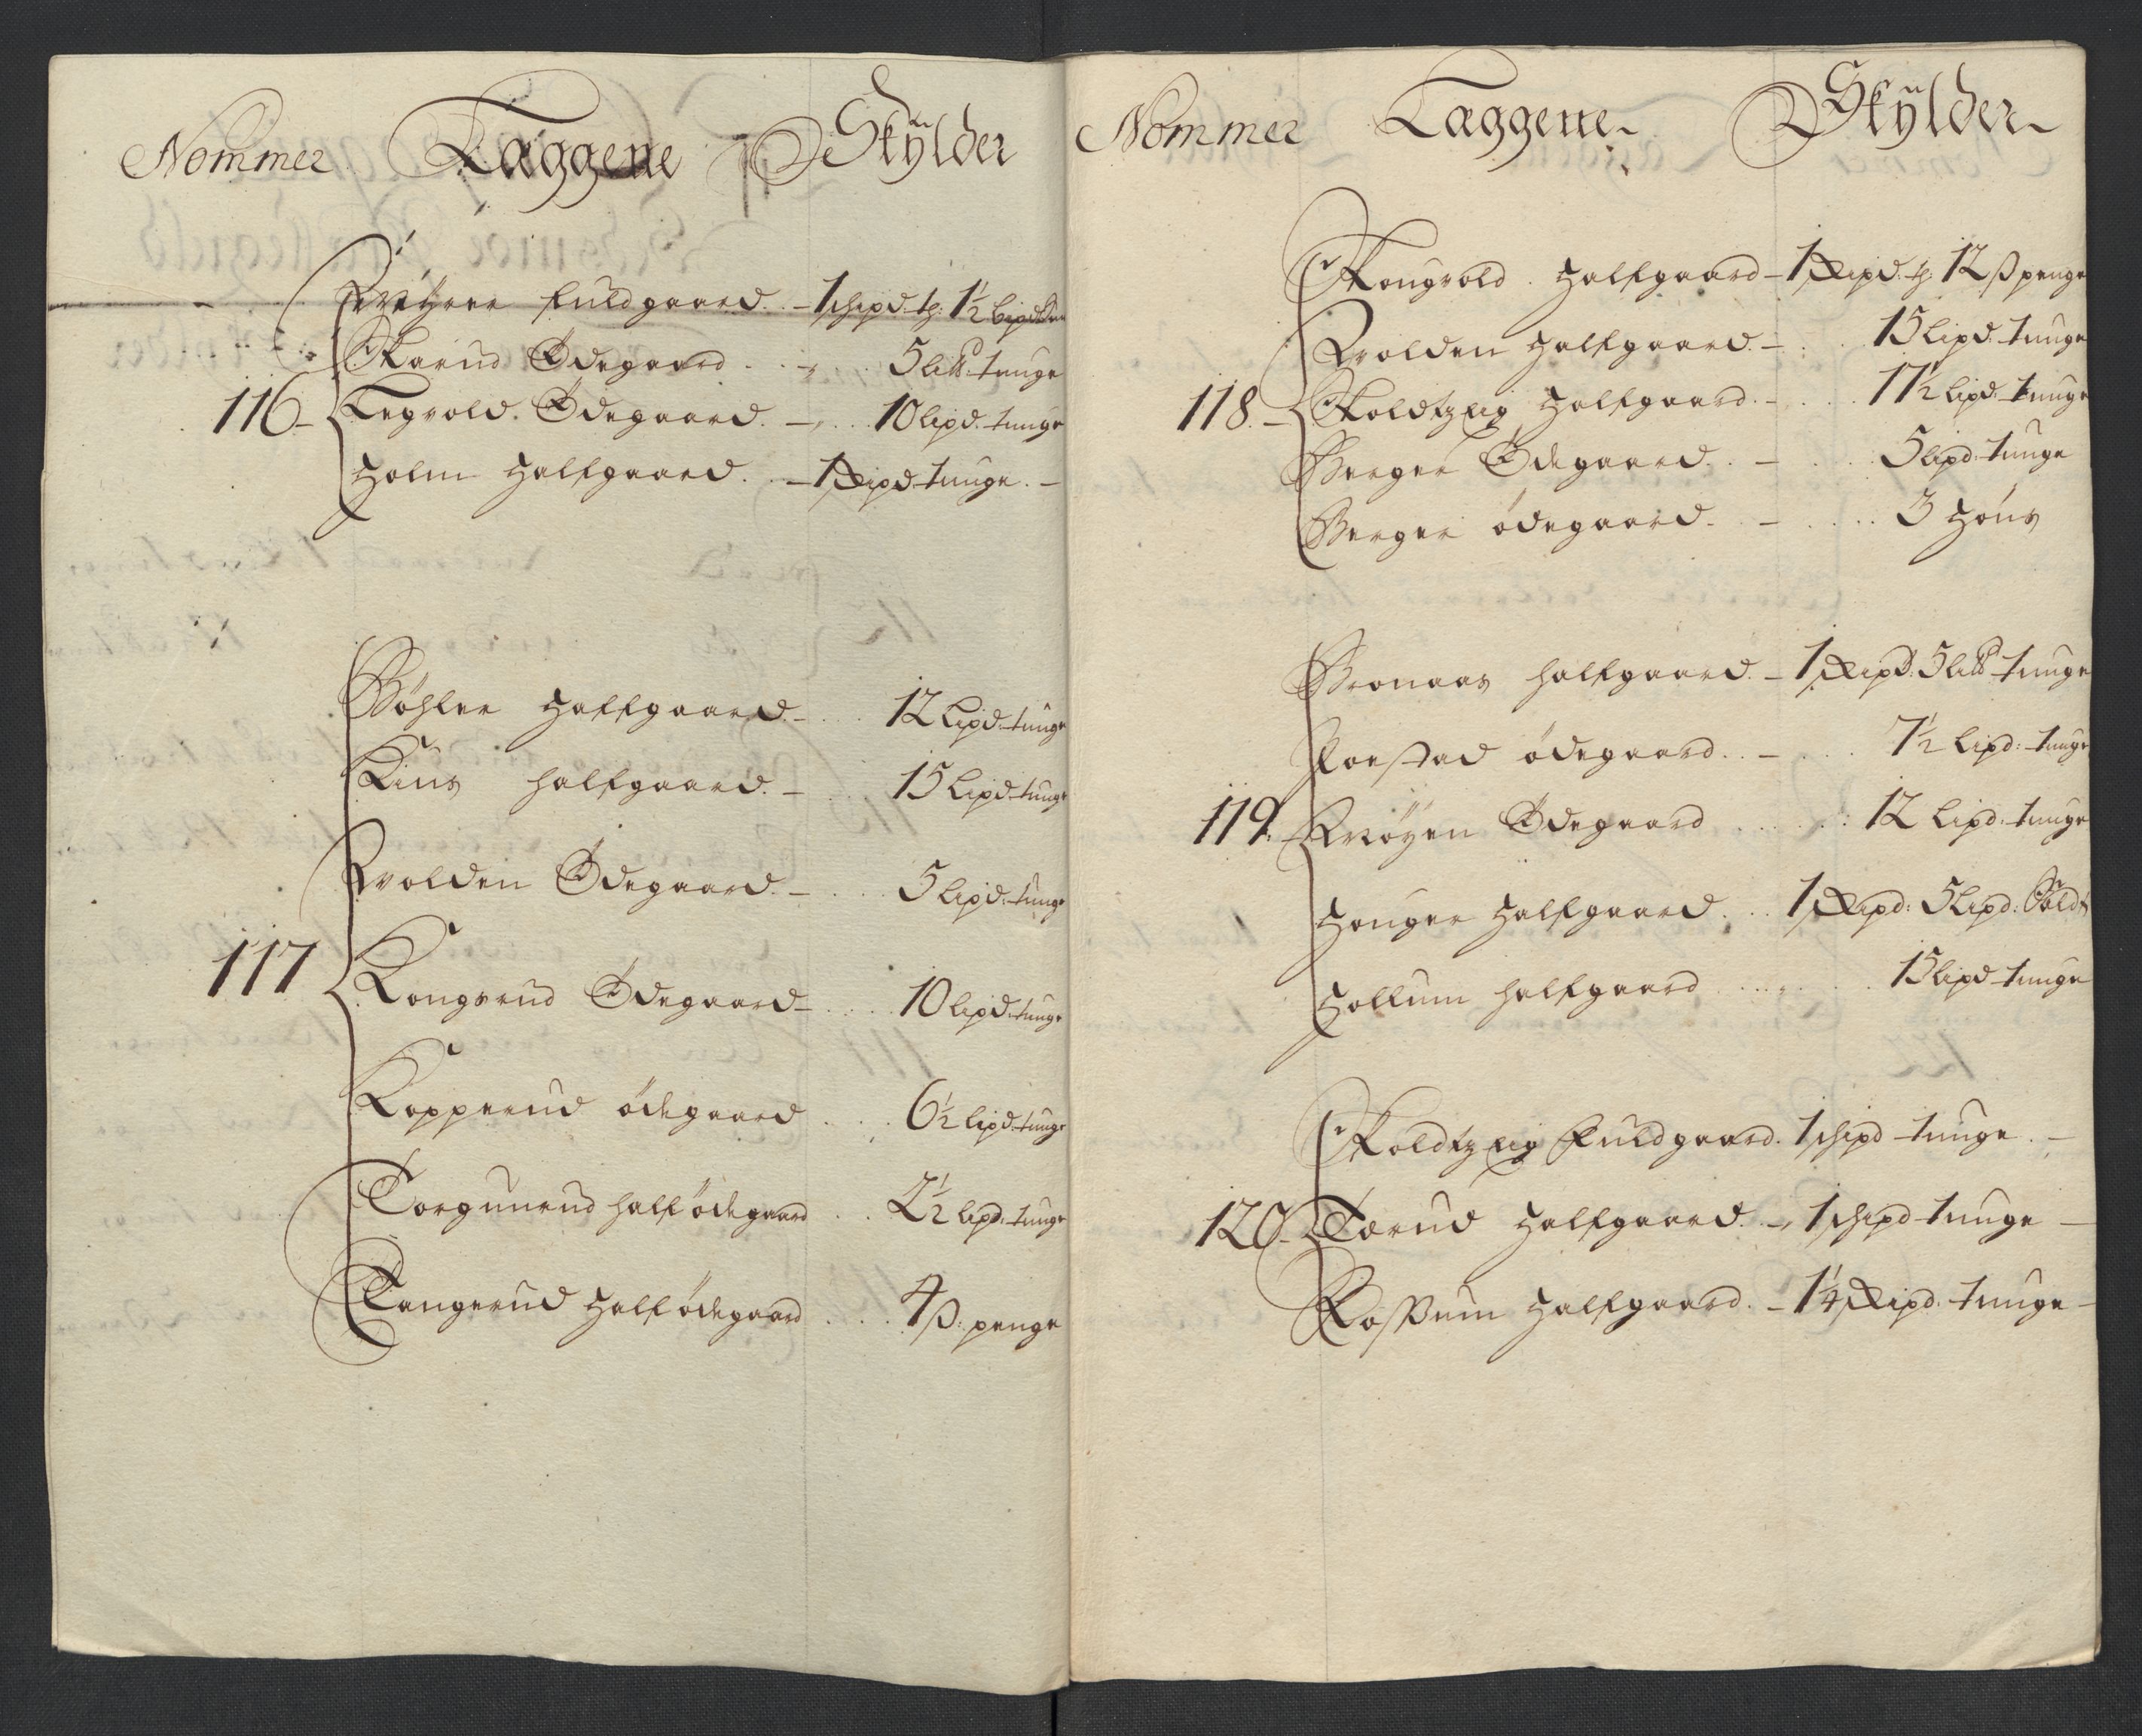 Nommer Læggene Skÿlder
Myhrer fuldgaard. - 1 schpd. tg: 1½ lispd
Skarud Ødegaard 5 lispd tunge
116 - Tegvold. Ødegaard. - 10 lispd. tunge
Holm Halfgaard. - 1 skipd tunge. -
Bøhler Halfgaard. - 12 Lispd. tunge
Lius halfgaard. - 15 Lispd. tunge
Wolden Ødegaard. - 5 Lispd. tunge
117 Kongsrud Ødegaard - 10 lispd. tunge
Kopperud ødegaard 6½ lispd. tunge
Torgunrud half ødegaard 2½ lispd. tunge
Tangerud Half ødegaard 4 ß: penge
Nommer Læggene Skÿlder
Kongvold. Halfgaard - 1 skipd. tg: 12 ß penge
Wolden Halfgaard. - 15 Lipd. tunge
118. - Halfgaard. - 17½ lipd. tunge
Berger Ødegaard. - 5 lipd. tunge
Berger ødegaard. - 3 Høns
Bronaas halfgaard. - 1 skipd. 5 lispd tunge
ødegaard. - 7½ Lipd: tunge
119. Møyen Ødegaard 12 Lipd. tunge
Houger Halfgaard. 1 skipd: 5 Lipd:
Hollum halfgaard 15 lipd tunge
Fuldgaard. 1 schipd tunge. -
120 - Torud Halfgaard. - 1 schipd tunge -
Rossum Halfgaard. - 1¼ skipd. tunge -